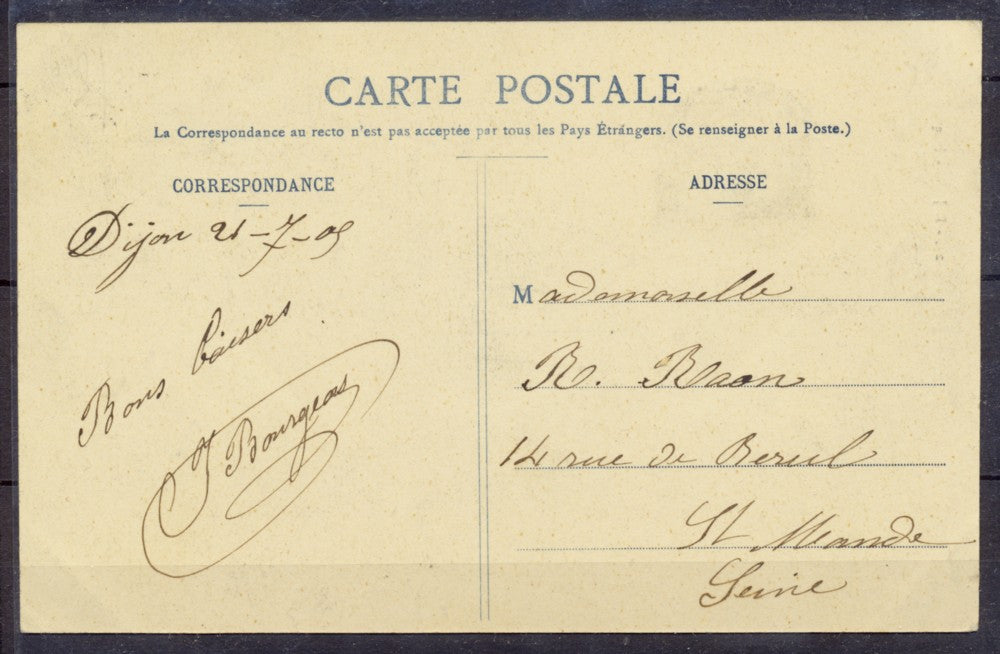 CARTE POSTALE
La Correspondance au recto n'est pas acceptée par tous les Pays Étrangers. (Se renseigner à la Poste.)
CORRESPONDANCE
Dijon 21-7-05
Bons baisers
J Bourgeois
ADRESSE
Mademoiselle
R. Raon
14 rue de
St Mande
Seine